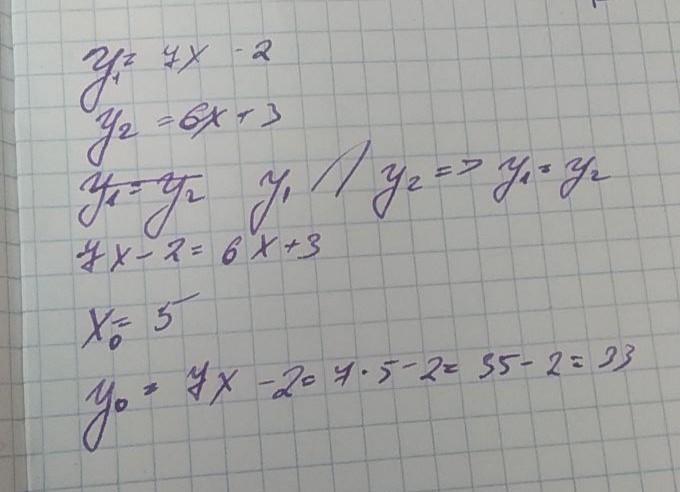 y₁ = 7x - 2
y₂ = 6x + 3
y₁ = y₂ y₁ ∩ y₂ => y₁ = y₂
7x - 2 = 6x + 3
x₀ = 5
y₀ = 7x - 2 = 7 · 5 - 2 = 35 - 2 = 33